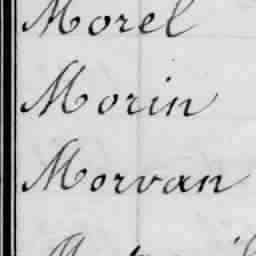 Morel
Morin
Morvan